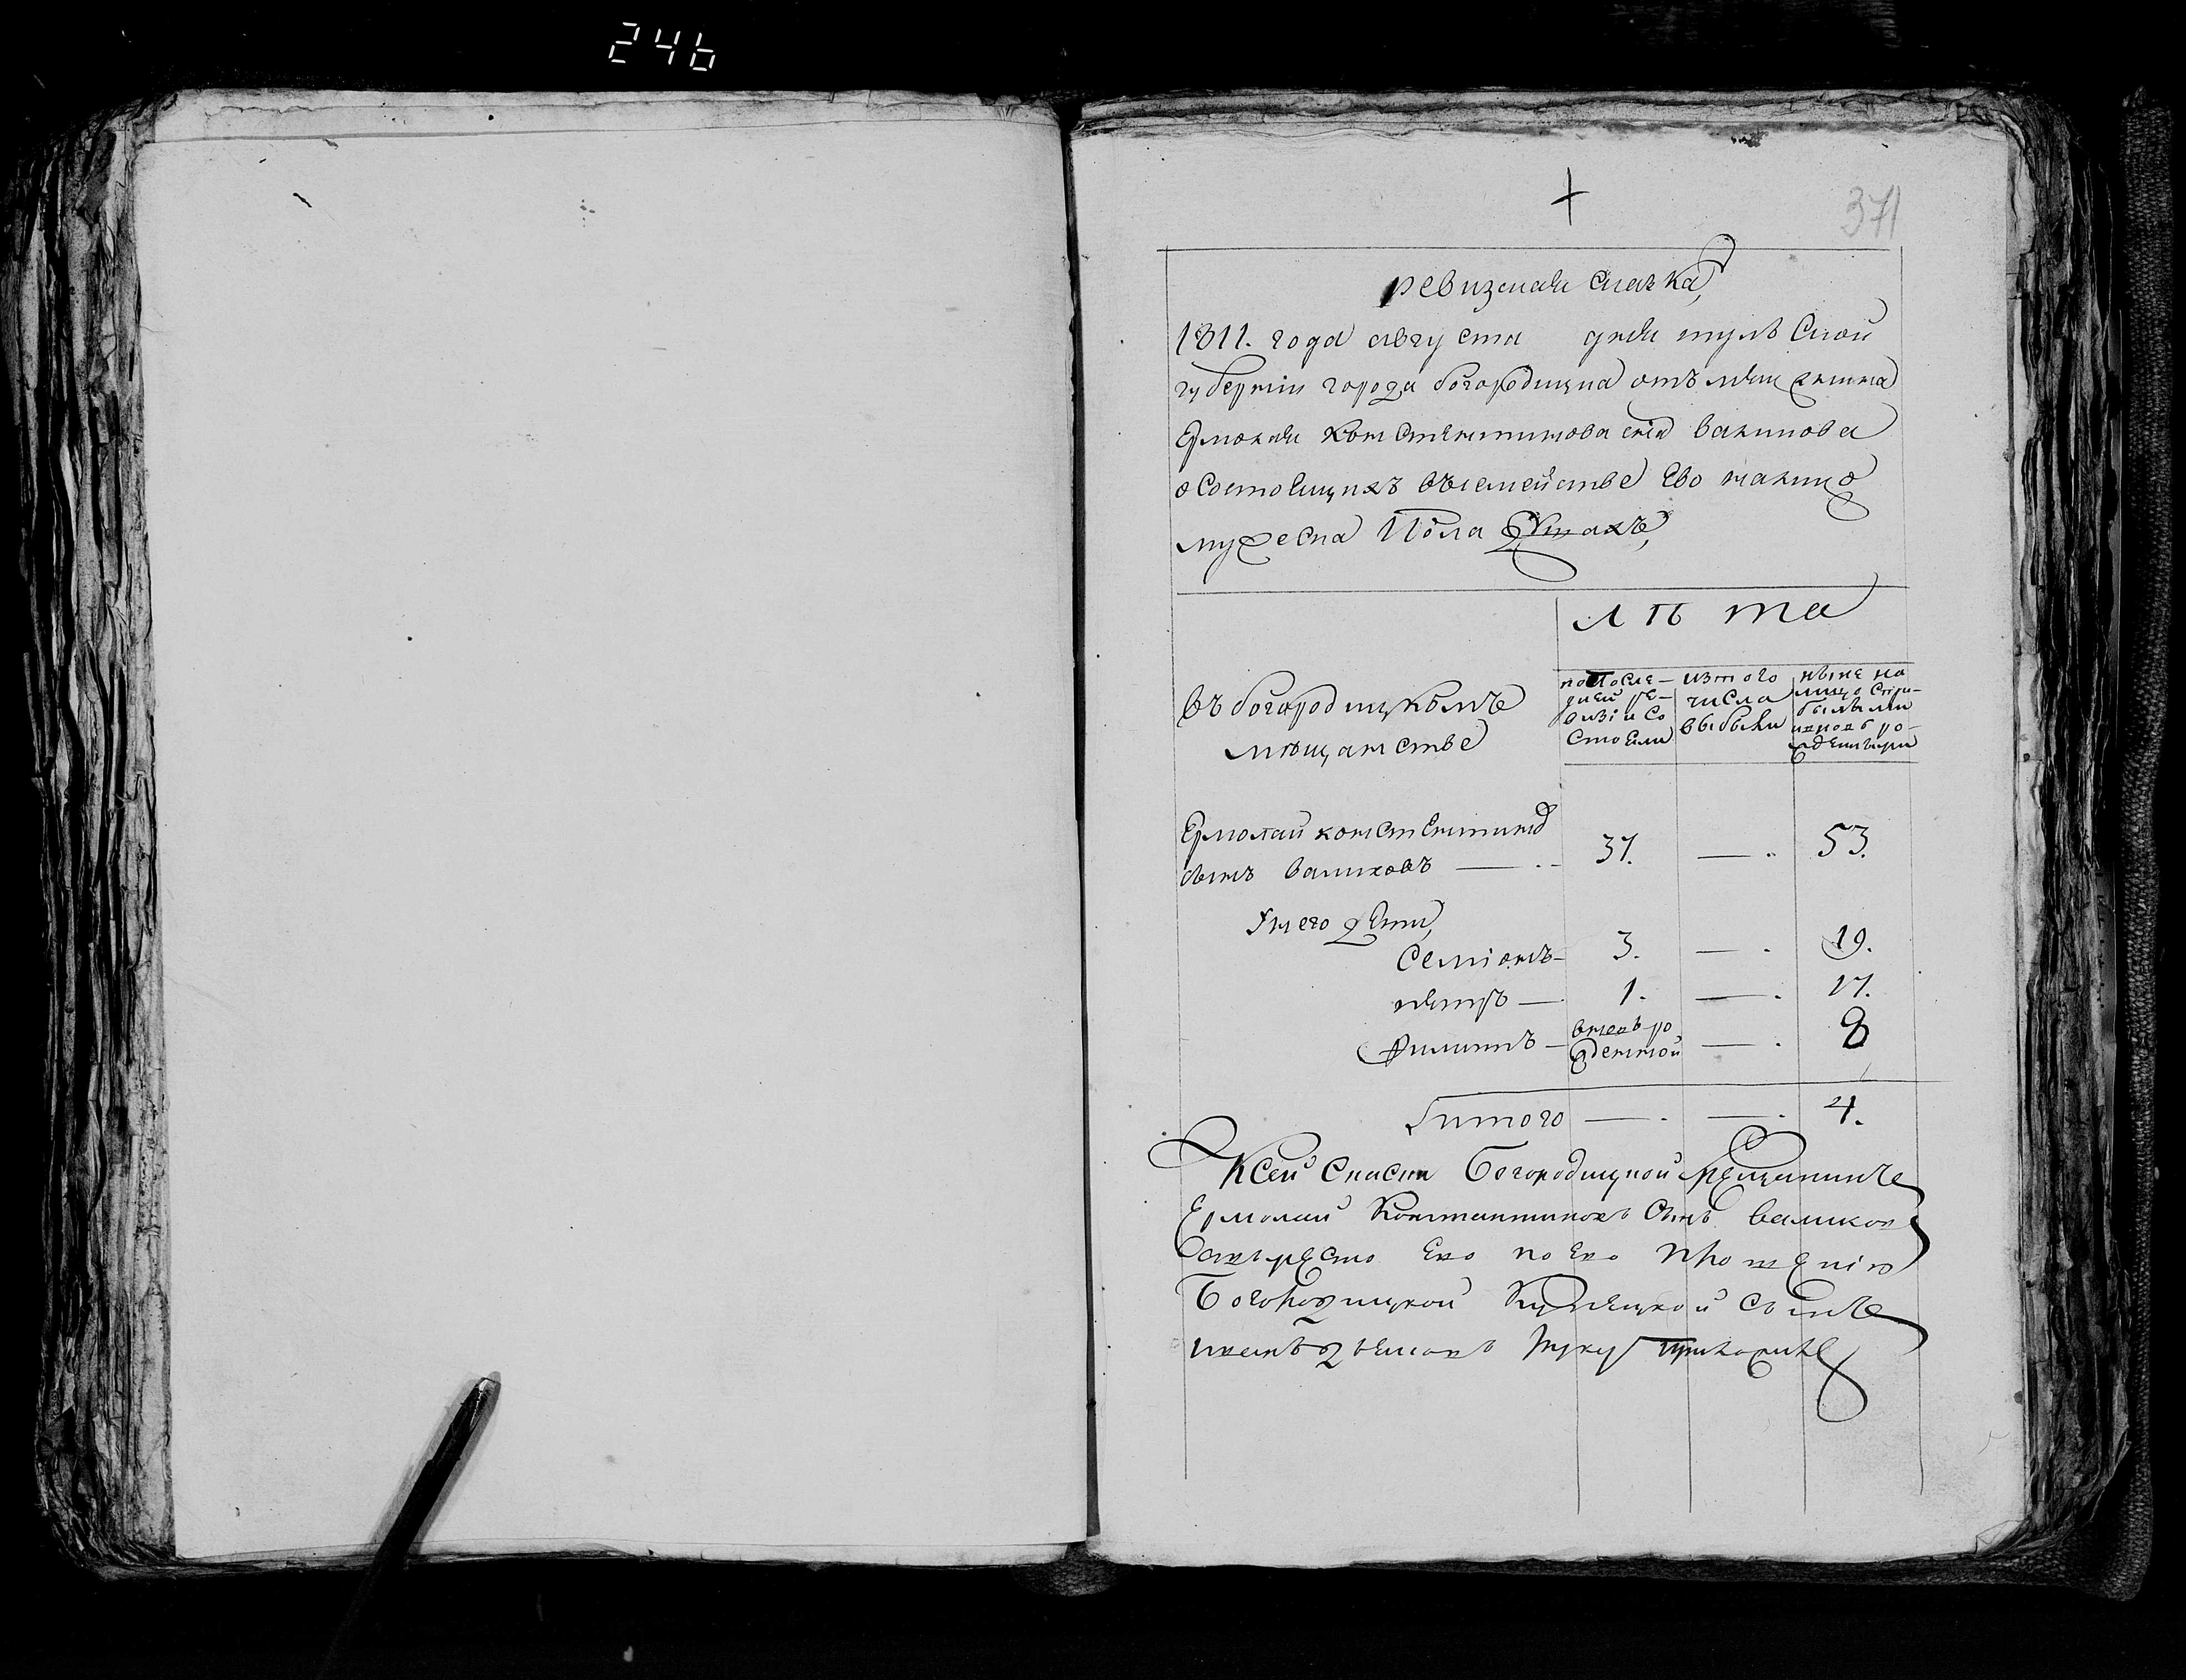 246
371
ревизская скаска
1811. года августа дня тулъской
губернии города богородицка отъ мещенина
Ермолая констентинова сна валикова
о состоещихъ въ семействе Ево налицо
мужеска пола душахъ
лѣта
въ богородицкомъ
мѣщанстве
по после-
дней ре-
визии со
стоели
изтого
числа
выбыли
ныне на
лицо съ при-
былыми
и вновь ро-
жденными
Ермолай констентиновъ
сынъ валиковъ — 37. — 53.
У него дети
Семионъ — 3. — 19.
петръ — 1. — 17.
филипъ — вновь ро
жденной — 8
Итого — — 4.
К сей скаски Богородицкой мещанинъ
Ермолай Константиновъ сынъ валиков
а вместо Ево по Ево прошению
Богородицкой купецкой сынъ
руку приложилъ